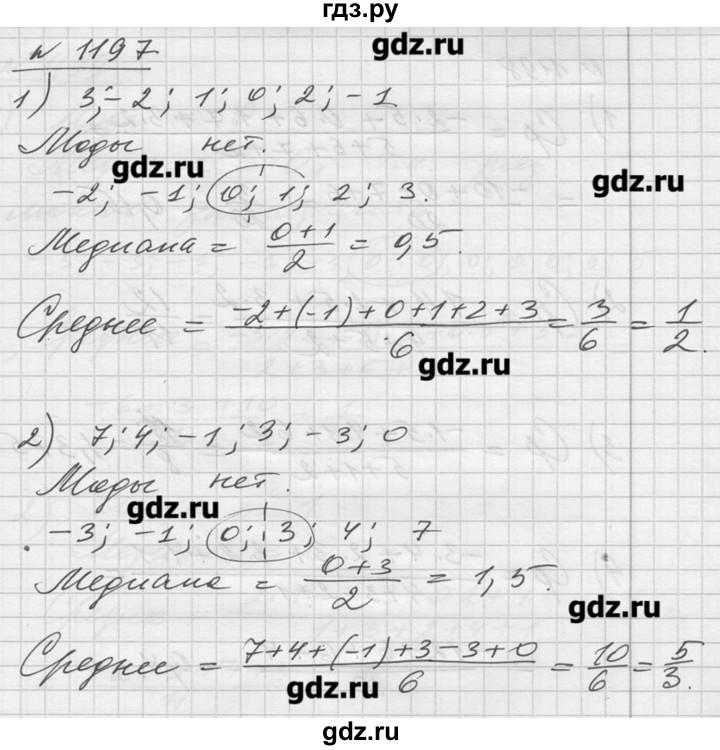 гдз.ру
gdz.ru
№ 1197
1) 3; -2; 1; 0; 2; -1
Моды нет.
gdz.ru
-2; -1; 0; 1; 2; 3.
gdz.ru
Медиана = (0+1)/2 = 0,5.
Среднее = (-2+(-1)+0+1+2+3)/6 = 3/6 = 1/2.
gdz.ru
2) 7; 4; -1; 3; -3; 0
Моды нет.
gdz.ru
-3; -1; 0; 3; 4; 7
Медиана = (0+3)/2 = 1,5.
gdz.ru
Среднее = (7+4+(-1)+3-3+0)/6 = 10/6 = 5/3.
gdz.ru
gdz.ru